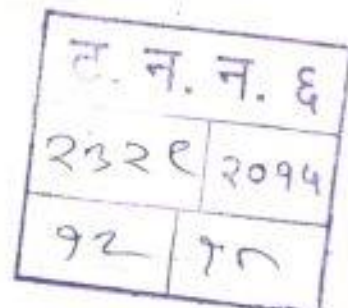 ट. न. न. ६
२३२९ २०१५
१२